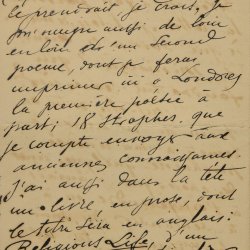 le prendrait, je crois, je
m'occupe aussi de loin
en loin d'un second
poeme, dont je ferai
imprimer ici à Londres
la première poésie à
part; 18 strophes, que
je compte envoyer aux
anciennes connaissances.
J'ai aussi dans la tête
un livre en prose, dont
le titre sera en anglais:
Religious Life, d'un